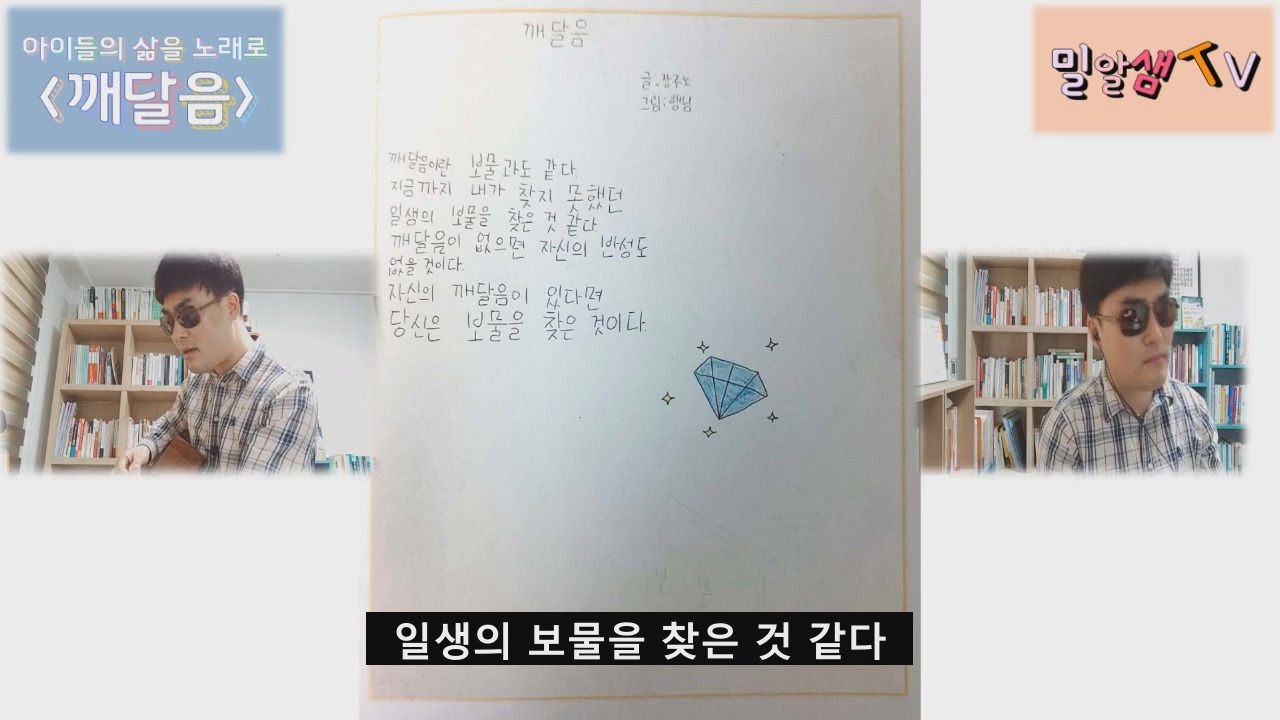 아이들의 삶을 노래로
<깨달음>
밀알샘TV
깨달음
글:강주노
그림:행님
깨달음이란 보물과도 같다.
지금까지 내가 찾지 못했던
일생의 보물을 찾은 것 같다
깨달음이 없으면 자신의 반성도
없을것이다.
자신의 깨달음이 있다면
당신은 보물을 찾은 것이다.
일생의 보물을 찾은 것 같다